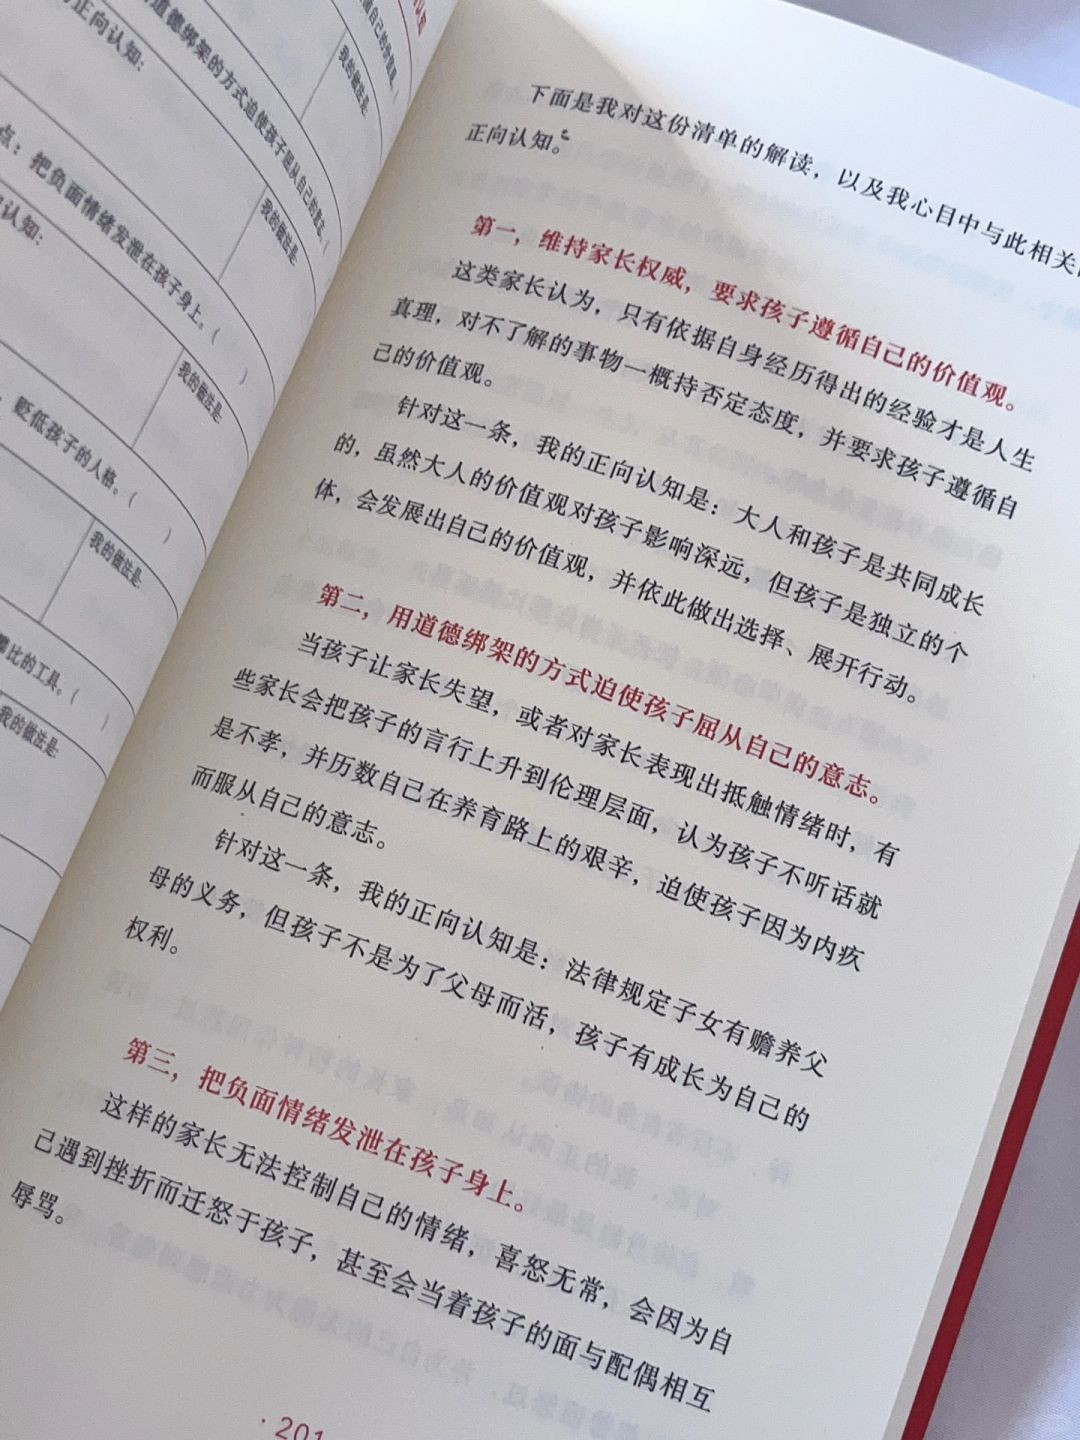 的认知
道德绑架的方式迫使孩子屈从自己的意志。(
我的做法是:
正向认知:
我的做法是:
点:把负面情绪发泄在孩子身上。( )
认知:
我的做法是:
贬低孩子的人格。( )
我的做法是:
比的工具。( )
我的做法是:
下面是我对这份清单的解读,以及我心目中与此相关
正向认知。
第一,维持家长权威,要求孩子遵循自己的价值观。
这类家长认为,只有依据自身经历得出的经验才是人生
真理,对不了解的事物一概持否定态度,并要求孩子遵循自
己的价值观。
针对这一条,我的正向认知是:大人和孩子是共同成长
的,虽然大人的价值观对孩子影响深远,但孩子是独立的个
体,会发展出自己的价值观,并依此做出选择、展开行动。
第二,用道德绑架的方式迫使孩子屈从自己的意志。
当孩子让家长失望,或者对家长表现出抵触情绪时,有
些家长会把孩子的言行上升到伦理层面,认为孩子不听话就
是不孝,并历数自己在养育路上的艰辛,迫使孩子因为内疚
而服从自己的意志。
针对这一条,我的正向认知是:法律规定子女有赡养父
母的义务,但孩子不是为了父母而活,孩子有成长为自己的
权利。
第三,把负面情绪发泄在孩子身上。
这样的家长无法控制自己的情绪,喜怒无常,会因为自
己遇到挫折而迁怒于孩子,甚至会当着孩子的面与配偶相互
辱骂。
· 201